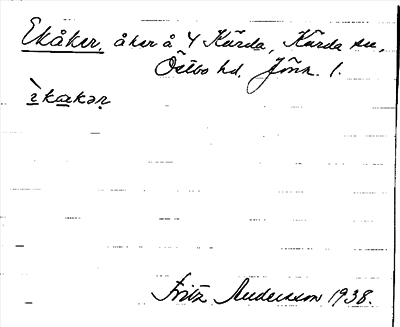 Ekåker, åker å 4 Kärda, Kärda sn,
Östbo hd. Jönk. l.
ìkakər
Fritz Andersson 1938.